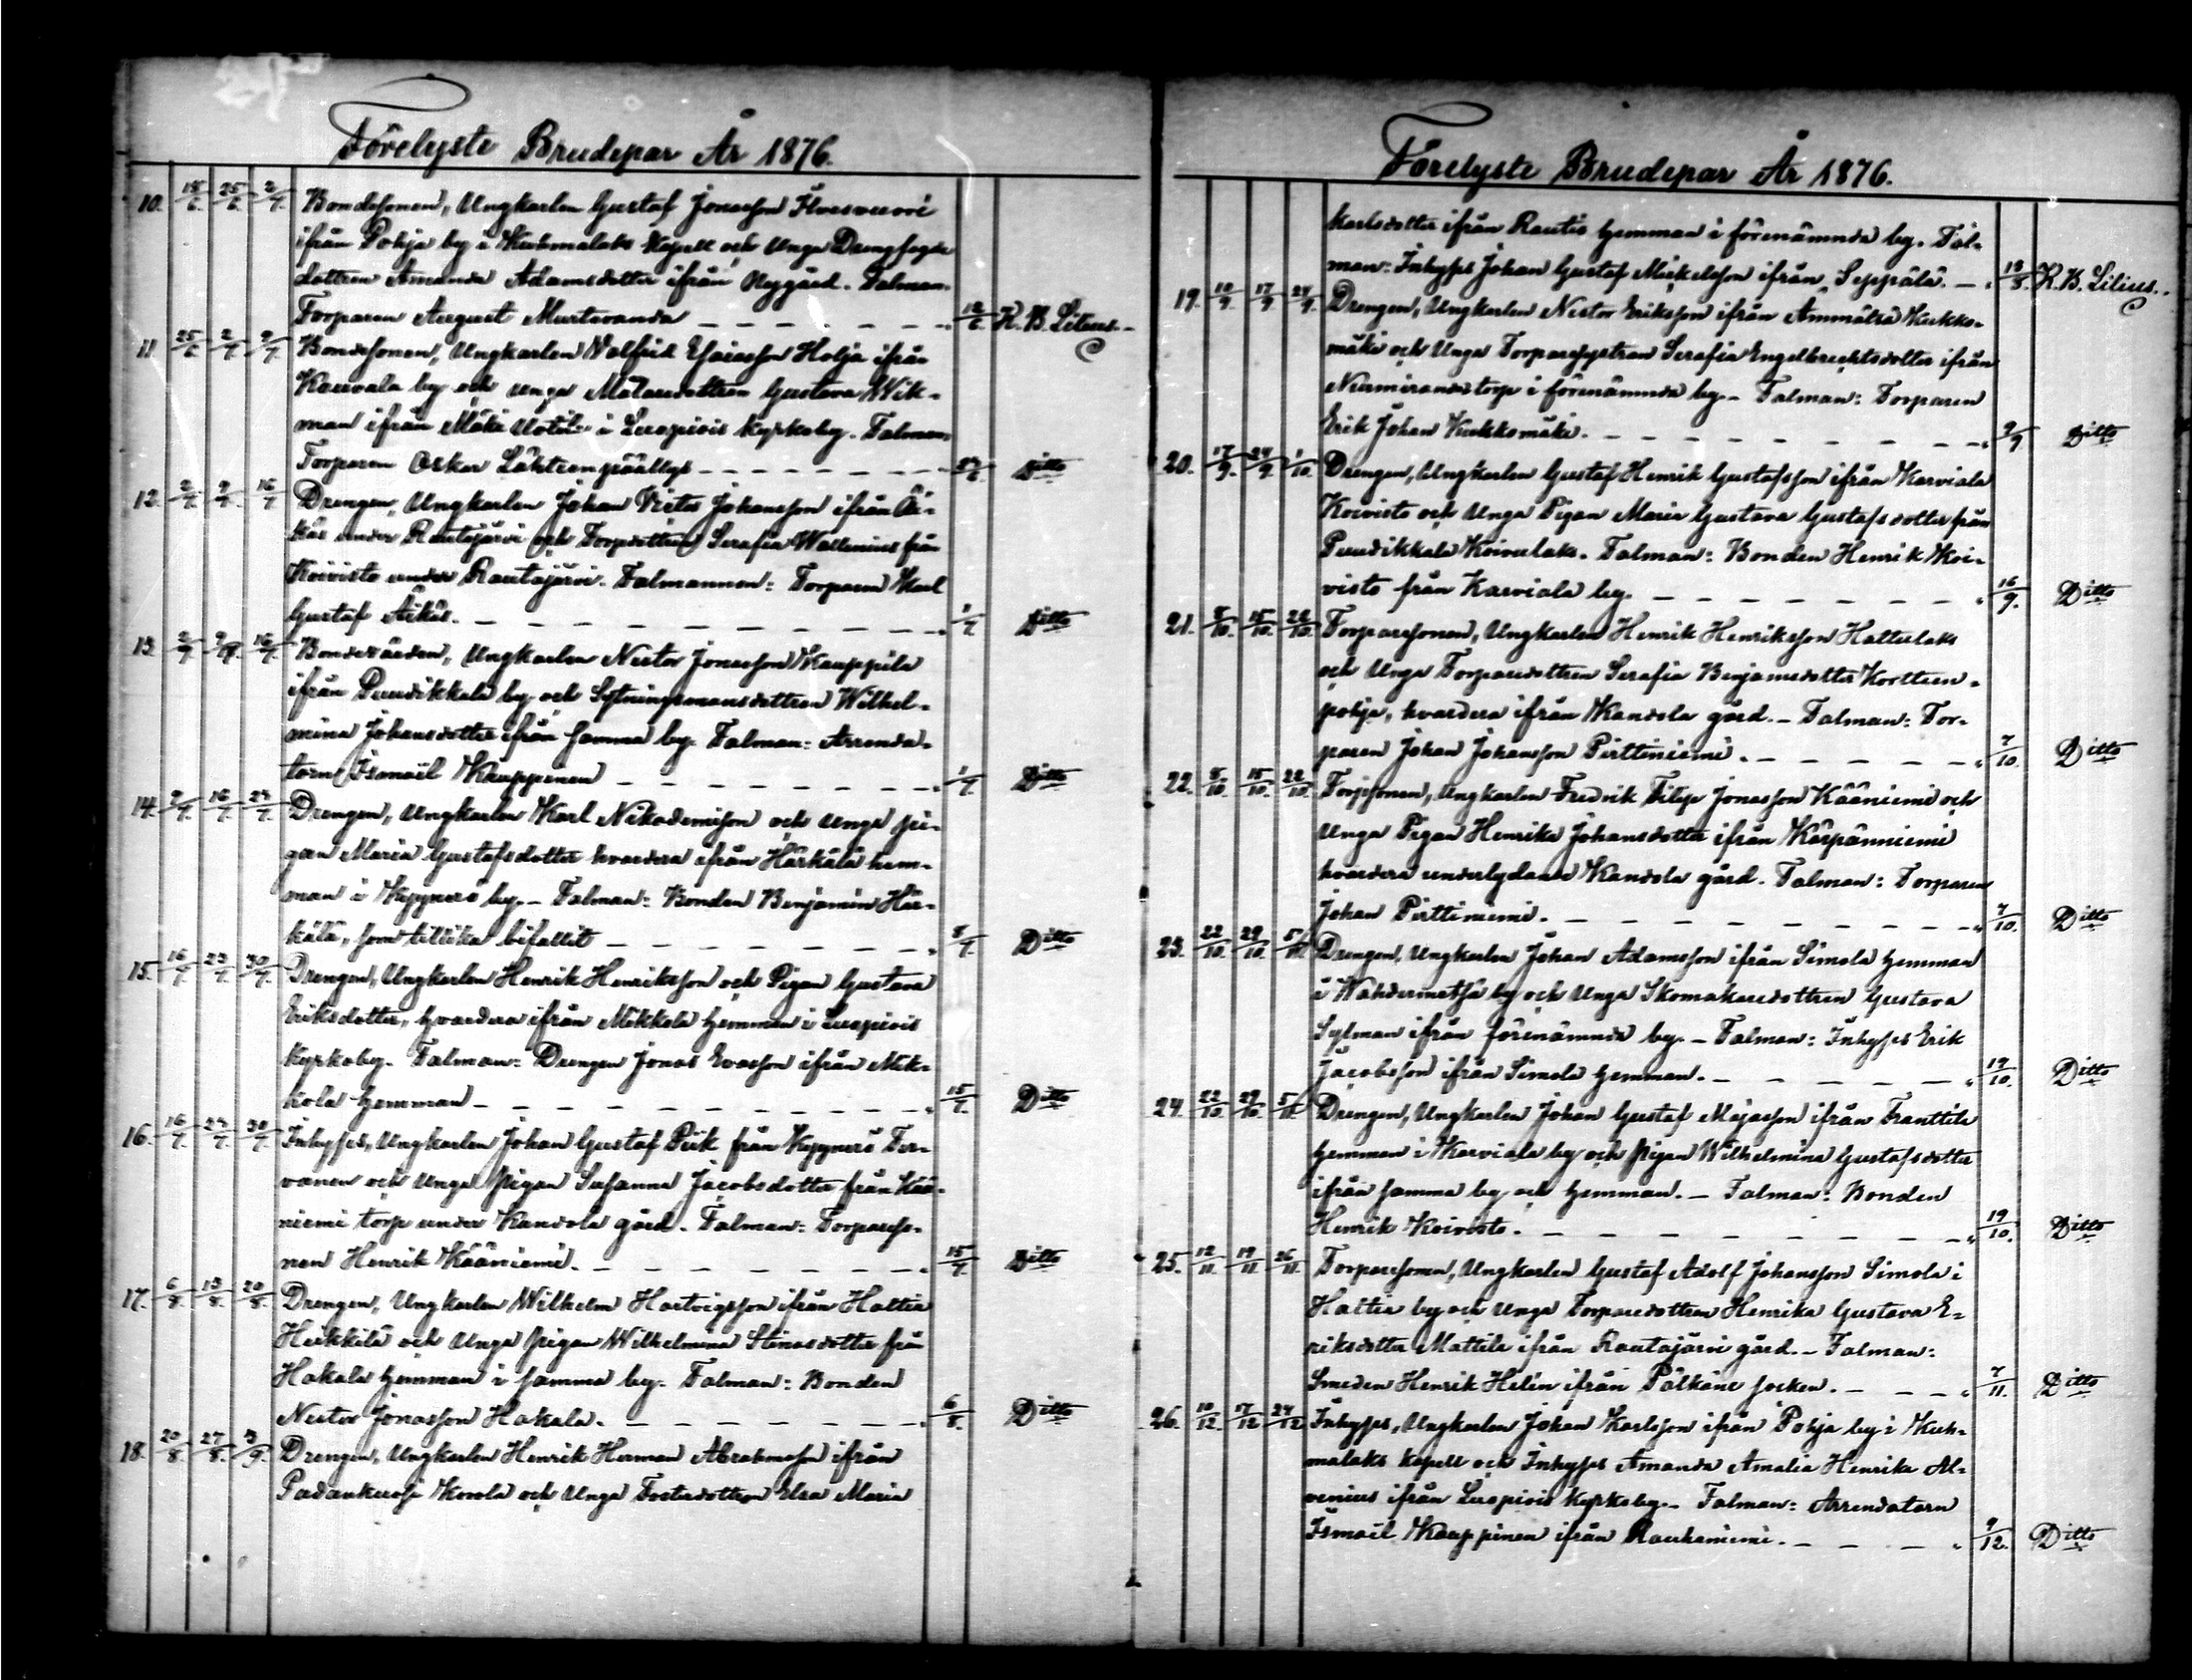 Förelyste Brudepar År 1876.
10. 18/6. 25/6. 2/7. Bondesonen, Ungkarlen Gustaf Jonasson Ilvesvuori
ifrån Pohja by i Kuhmalaks Kapell och Unga Drengfogde
dottren Amanda Adamsdotter ifrån Nygård. Talman:
Torparen August Murteranda 12/6. K. B. Lilius.
11. 25/6. 2/7. 9/7. Bondesonen, Ungkarlen Walfrid Esaiasson Holja ifrån
Karvala by och unga Målaredottren Gustava Wik-
man ifrån Mäki Uotila i Luopiois Kyrkoby. Talman:
Torparen Oskar 24/6. Ditto
12. 2/7. 9/7. 16/7. Drengen, Ungkarlen Johan Victor Johansson ifrån Äi-
käs under Rautajärvi och Torpdottren Serafia Wallenius från
Koivisto under Rautajärvi. Talmannen: Torparen Karl
Gustaf Äikäs. 1/7. Ditto
13. 2/7. 9/7. 16/7. Bondevärden, Ungkarlen Nestor Jonasson Kauppila
ifrån Puudikkala by och Sytningsmansdottren Wilhel-
mina Johansdotter ifrån samma by. Talman: Arrenda-
torn Ismaël Kauppinen 1/7. Ditto
14. 9/7. 16/7. 23/7. Drengen, Ungkarlen Karl Nikodemsson och Unga pi-
gan Maria Gustafsdotter hvardera ifrån Härkälä hem-
man i Kyynärö by. - Talman: Bonden Benjamin Här-
kälä, som tillika bifallit 8/7. Ditto
15. 16/7. 23/7. 30/7. Drengen, Ungkarlen Henrik Henriksson och Pigan Gustava
Eriksdotter, hvardera ifrån Mikkola hemman i Luopiois
Kyrkoby. Talman: Drengen Jonas Evasson ifrån Mik-
kola hemman 15/7. Ditto
16. 16/7. 23/7. 30/7. Inhyses, Ungkarlen Johan Gustaf Piik från Kyynärö Ter-
vanen och Unga pigan Susanna Jacobsdotter från Kää-
niemi torp under Kandola gård. Talman: Torpareso-
nen Henrik Kääniemi. 15/7. Ditto
17. 6/8. 13/8. 20/8. Drengen, Ungkarlen Wilhelm Hartvigsson ifrån Haltia
Heikkilä och Unga pigan Wilhelmina Stinasdotter från
Hakala hemman i samma by. Talman: Bonden
Nestor Jonasson Hakala. 6/8. Ditto
18. 20/8. 27/8. 3/9. Drengen, Ungkarlen Henrik Herman Abrahamsson ifrån
Padankoski Korola och Unga Fosterdottren Elsa Maria
Förelyste Brudepar År 1876.
Karlsdotter ifrån Rautio hemman i förenämnda by. Tal-
man: Inhyses Johan Gustaf Mickelsson ifrån Seppälä. 19/8. K. B. Lilius.
19. 10/9. 17/9. 24/9. Drengen, Ungkarlen Nestor Eriksson ifrån Ammätsä Kukko-
mäki och Unga Torparesystran Serafia Engelbrechtsdotter ifrån
Nurmiranda torp i förenämnda by. - Talman: Torparen
Erik Johan Kukkomäki. 9/9. Ditto
20. 17/9. 24/9. 1/10. Drengen, Ungkarlen Gustaf Henrik Gustafsson ifrån Karviala
Koivisto och Unga Pigan Maria Gustava Gustafsdotter från
Puudikkala Koivulaks. Talman: Bonden Henrik Koi-
visto från Karviala by. 16/9. Ditto
21. 8/10. 15/10. 22/10. Torparesonen, Ungkarlen Henrik Henriksson Hattulaks
och Unga Torparedottren Serafia Benjamsdotter Kortteen-
pohja, hvardera ifrån Kandola gård. - Talman: Tor-
paren Johan Johansson Pirttiniemi. 7/10. Ditto
22. 8/10. 15/10. 22/10. Torpsonen, Ungkarlen Fredrik Filip Jonasson Kääniemi och
Unga Pigan Henrika Johansdotter ifrån Kärpänniemi
hvardera underlydande Kandola gård. Talman: Torparen
Johan Pirttiniemi. 7/10. Ditto
23. 22/10. 29/10. 5/11. Drengen, Ungkarlen Johan Adamsson ifrån Simola hemman
i Wahdermetsä by och Unga Skomakaredottren Gustava
Sylman ifrån förenämnda by. - Talman: Inhyses Erik
Jacobsson ifrån Simola hemman. 19/10. Ditto
24. 22/10. 29/10. 5/11. Drengen, Ungkarlen Johan Gustaf Majasson ifrån Franttila
hemman i Karviala by och pigan Wilhelmina Gustafsdotter
ifrån samma by och hemman. - Talman: Bonden
Henrik Koivisto. 19/10. Ditto
25. 12/11. 19/11. 26/11. Torparesonen, Ungkarlen Gustaf Adolf Johansson Simola i
Haltia by och Unga Torparedottren Henrika Gustava E-
riksdotter Mattila ifrån Rautajärvi gård. - Talman:
Smeden Henrik Helin ifrån Pälkäne socken. 7/11. Ditto
26. 10/12. 17/12. 24/12. Inhyses, Ungkarlen Johan Karlsson ifrån Pohja by i Kuh-
malaks kapell och Inhyses Amanda Amalia Henrika Al-
venius ifrån Luopiois Kyrkoby. - Talman: Arrendatorn
Ismaël Kauppinen ifrån Rauhaniemi. 9/12. Ditto